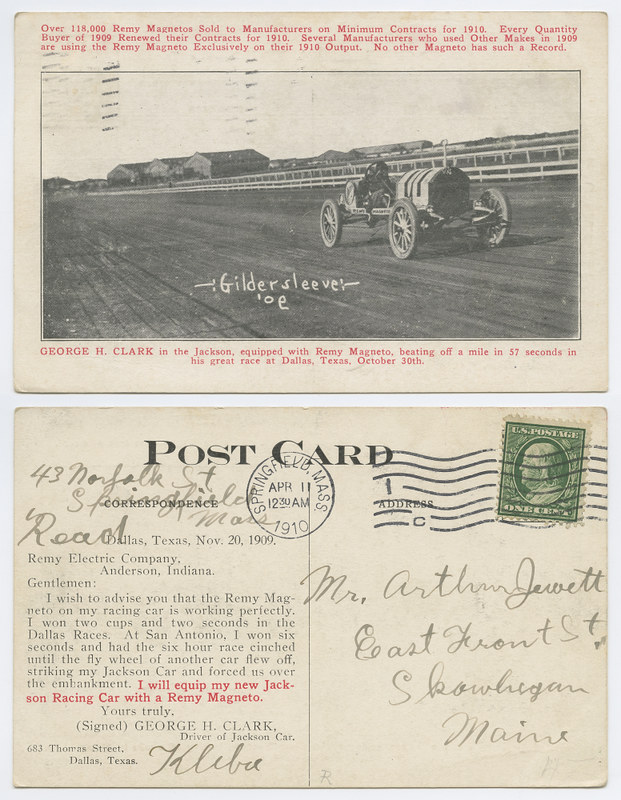 Over 118,000 Remy Magnetos Sold to Manufacturers on Minimum Contracts for 1910. Every Quantity
Buyer of 1909 Renewed their Contracts for 1910. Several Manufacturers who used Other Makes in 1909
are using the Remy Magneto Exclusively on their 1910 Output. No other Magneto has such a Record.
Gildersleeve
'09
GEORGE H. CLARK in the Jackson, equipped with Remy Magneto, beating off a mile in 57 seconds in
his great race at Dallas, Texas, October 30th.
POST CARD
43 Norfolk St
Springfield
Mass
CORRESPONDENCE
Read
Dallas, Texas, Nov. 20, 1909.
Remy Electric Company,
Anderson, Indiana.
Gentlemen:
I wish to advise you that the Remy Mag-
neto on my racing car is working perfectly.
I won two cups and two seconds in the
Dallas Races. At San Antonio, I won six
seconds and had the six hour race cinched
until the fly wheel of another car flew off,
striking my Jackson Car and forced us over
the embankment. I will equip my new Jack-
son Racing Car with a Remy Magneto.
Yours truly,
(Signed) GEORGE H. CLARK,
Driver of Jackson Car.
683 Thomas Street,
Dallas, Texas.
SPRINGFIELD, MASS.
APR 11
12 30 AM
1910
1
C
ADDRESS
U.S. POSTAGE
ONE CENT
Mr. Arthur Jewett
East Front St.
Skowhegan
Maine
R